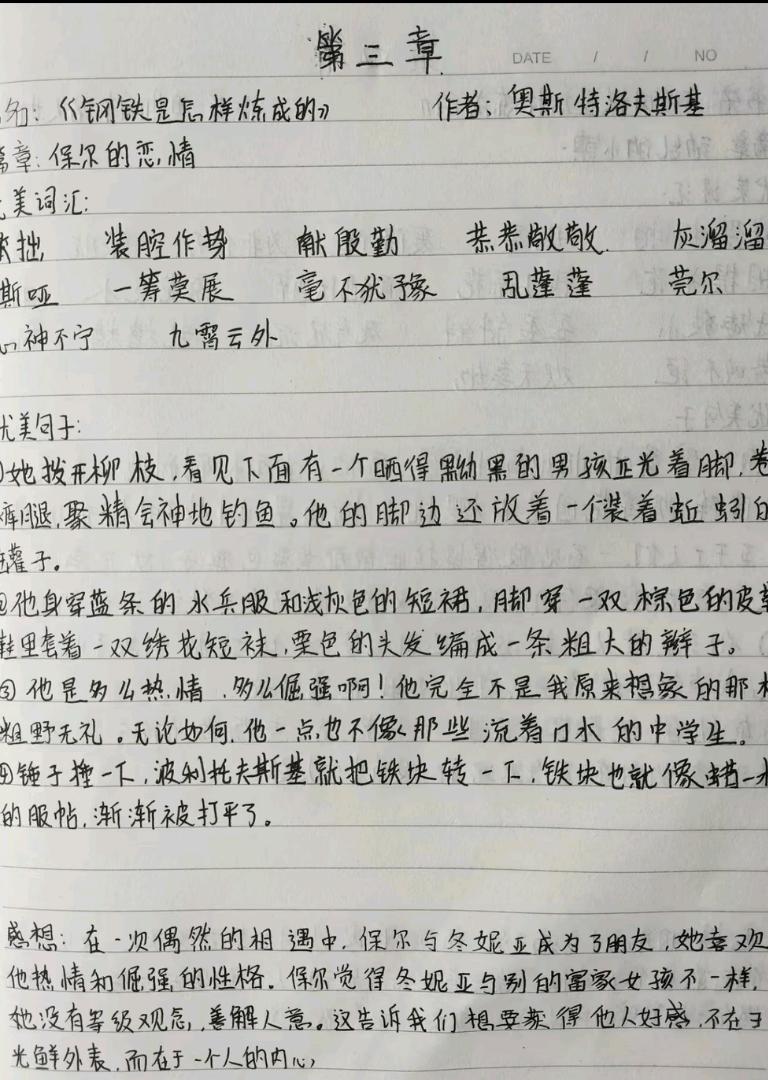 第三章
DATE / / NO
名:《钢铁是怎样炼成的》 作者:奥斯特洛夫斯基
篇章:保尔的恋情
优美词汇:
拙 装腔作势 献殷勤 恭恭敬敬 灰溜溜
斯哑 一筹莫展 毫不犹豫 乱蓬蓬 莞尔
心神不宁 九霄云外
优美句子:
①她拨开柳枝,看见下面有一个晒得黝黑的男孩正光着脚,卷
裤腿,聚精会神地钓鱼。他的脚边还放着一个装着蚯蚓的
罐子。
②他身穿蓝条的水兵服和浅灰色的短裙,脚穿一双棕色的皮
鞋里套着一双绣花短袜,栗色的头发编成一条粗大的辫子。
③他是多么热情,多么倔强啊!他完全不是我原来想象的那样
粗野无礼。无论如何,他一点也不像那些流着口水的中学生。
④锤子捶一下,波利托夫斯基就把铁块转一下,铁块也就像蜡一
的服帖,渐渐被打平了。
感想:在一次偶然的相遇中,保尔与冬妮亚成为了朋友,她喜欢
他热情和倔强的性格。保尔觉得冬妮亚与别的富家女孩不一样,
她没有等级观念,善解人意。这告诉我们想要获得他人好感,不在于
光鲜外表,而在于一个人的内心,